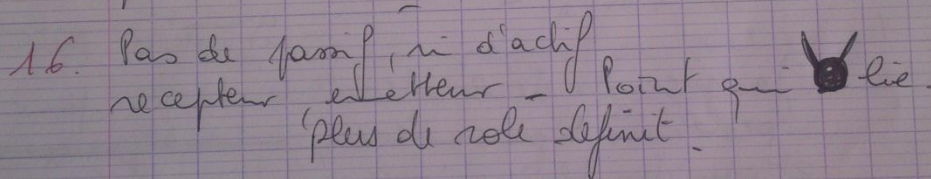 16. Pas de passif, ni d'actif
recepteur emetteur - Point qui lie.
plus de role definit.